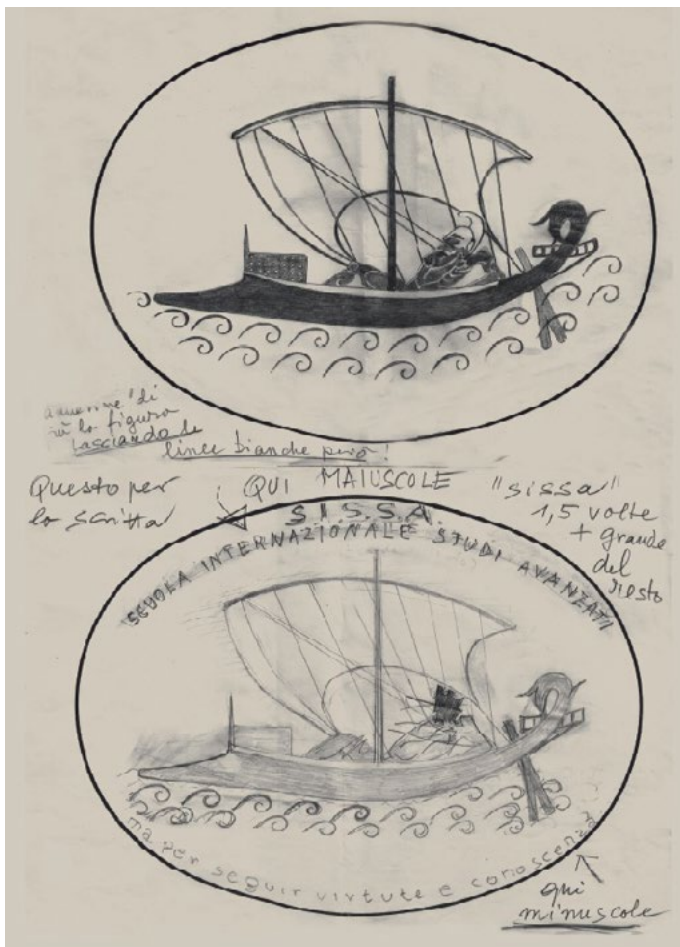 lo figura
lasciando le
linee bianche però!
Questo per
la scritta
QUI MAIUSCOLE
"sissa"
1,5 volte
+ grande
del
resto
S.I.S.S.A.
SCUOLA INTERNAZIONALE STUDI AVANZATI
ma per seguir virtute e conoscenza
qui
minuscole